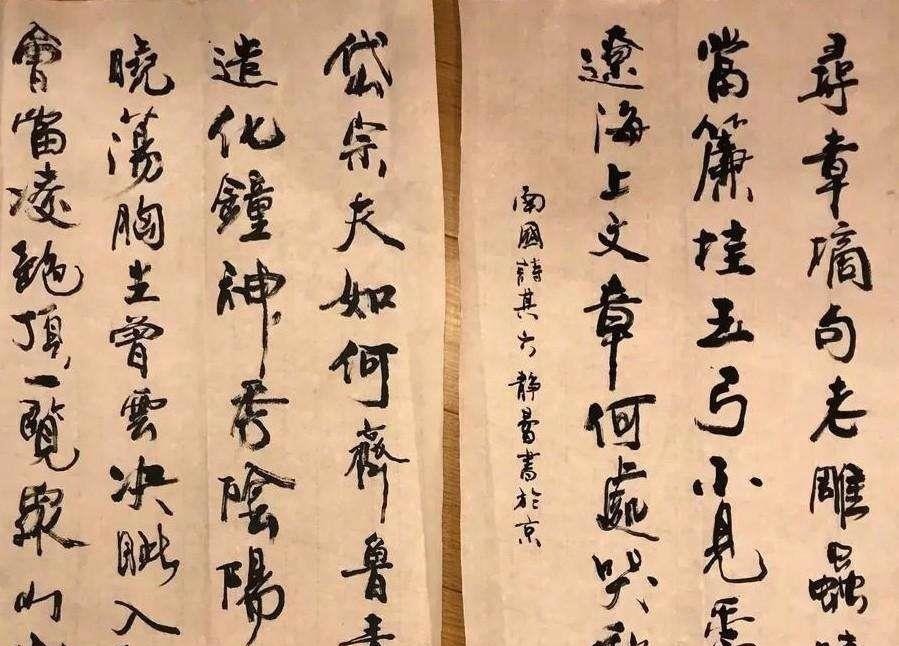 尋章摘句老雕蟲
當簾挂玉弓不見
遼海上文章何處哭
南國詩其六 靜書於京
岱宗夫如何齊魯青
造化鐘神秀陰陽
曉蕩胸生曾雲决眦入
會當凌絕頂一覽眾山